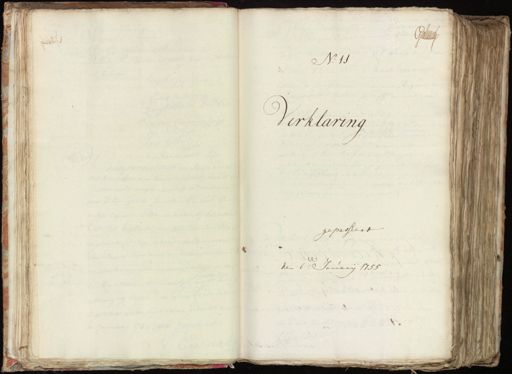 N.º 11
Verklaring
gepasseert
den 6.de Januarij 1755